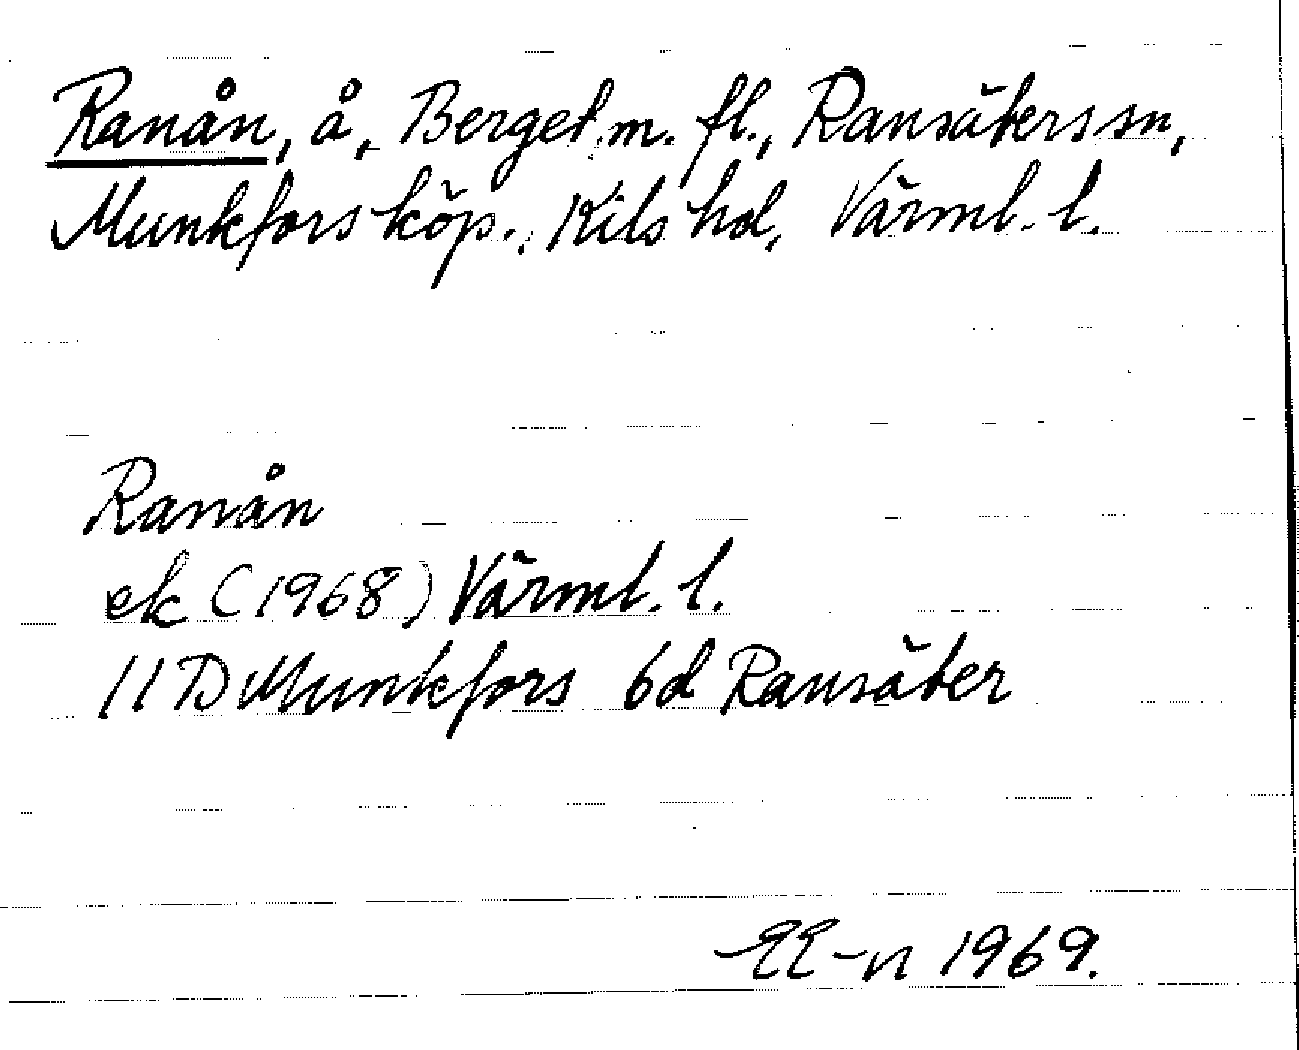 Ranån, å, Berget m. fl., Ransäters sn,
Munkfors köp., Kils hd, Värml. l.
Ranån
ek (1968) Värml. l.
11D Munkfors 6d Ransäter
EE-n 1969.